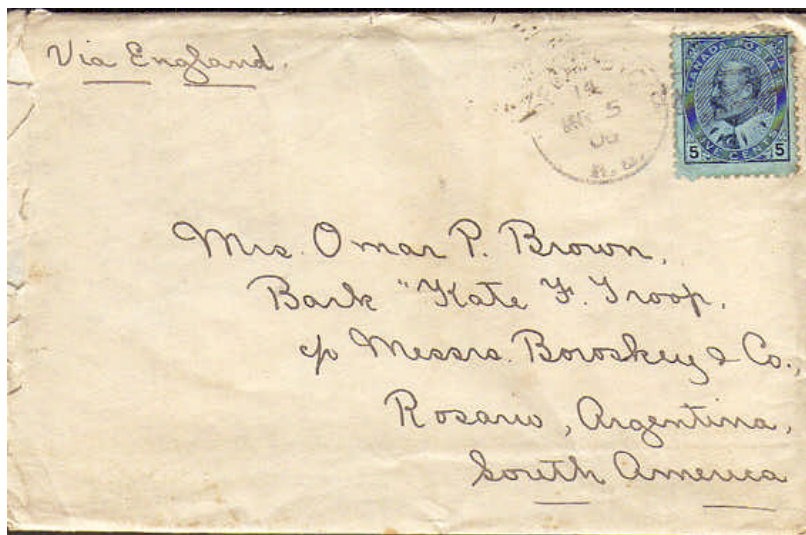 Via England.
14
5
CANADA POSTAGE
5 FIVE CENTS 5
Mrs. Omar P. Brown,
Bark "Kate F. Troop,
c/o Messrs. Boroskey & Co.,
Rosario, Argentina,
South America